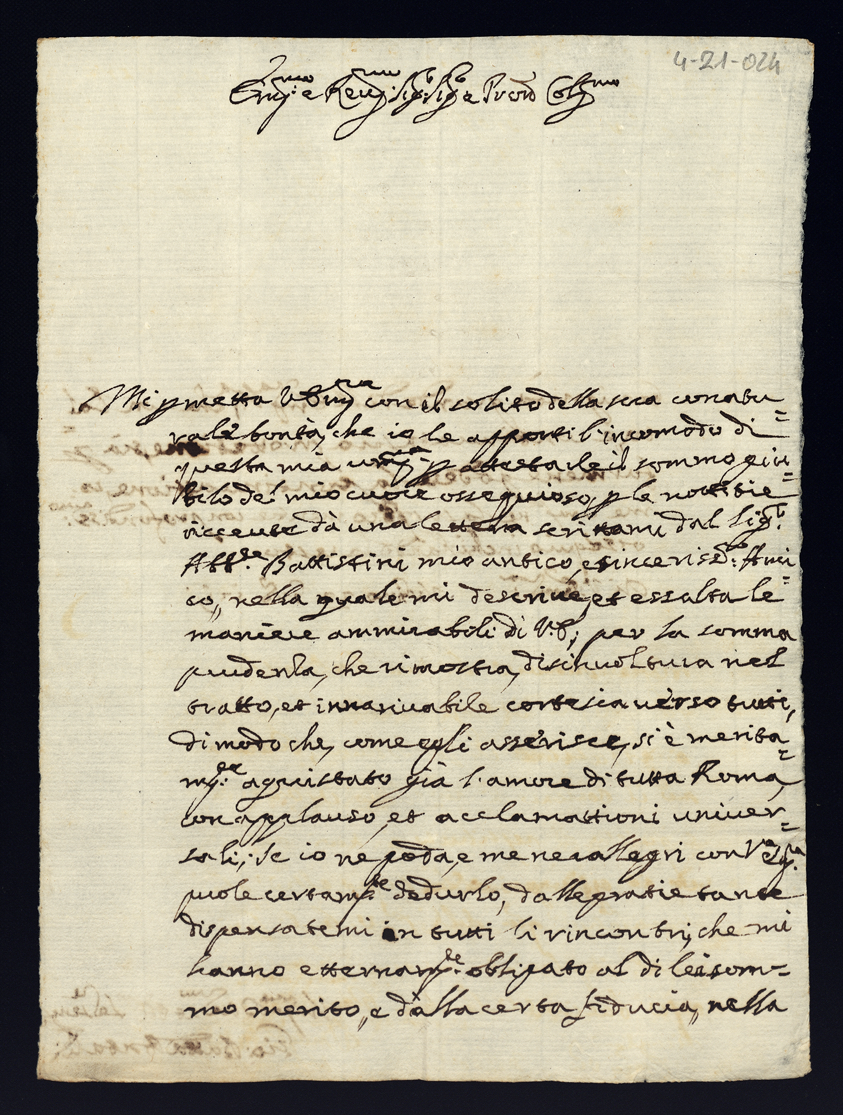 4-21-024
Em.mo e Rev.mo Sig.r Sig.r e Pron Col.mo
Mi permetta V. Em.za con il solito della sua conatu=
rale bontà, che io le apporti l'incomodo di
questa mia um.ma per attestarle il sommo giu=
bilo del mio cuore ossequioso, per le nottitie
riceute dà una lettera scrittami dal Sig.r
Abb.te Battistini mio antico, et sinceriss.o Ami=
co, nella quale mi descrive, et essalta le
maniere ammirabili di V. E., per la somma
prudenza, che rimostra, disinvoltura nel
tratto, et innarivabile cortesia verso tutti,
di modo che, come egli asserisce, si è merita=
m.te aquistato già l'amore di tutta Roma,
con applauso, et acclamattioni univer=
sali; se io ne goda, e me ne rallegri con V.
puole certam.te dedurlo, dalle gratie tante
dispensatemi in tutti li rincontri, che mi
hanno etternam.te obligato al di lei som=
mo merito, e dalla certa fiducia, nella